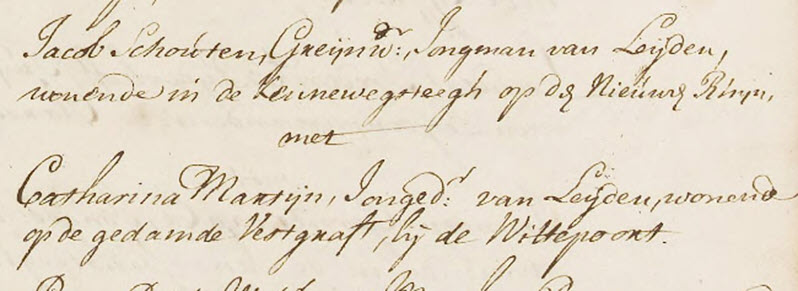 Jacob Schouten, Greijnwr:, Jongman van Leijden,
wonende in de Leunewegsteegh op de Nieuwe Rhijn,
met
Catharina Martijn, Jonged:r van Leijden, wonend
op de gedamde Vestgraft, bij de Wittepoort.